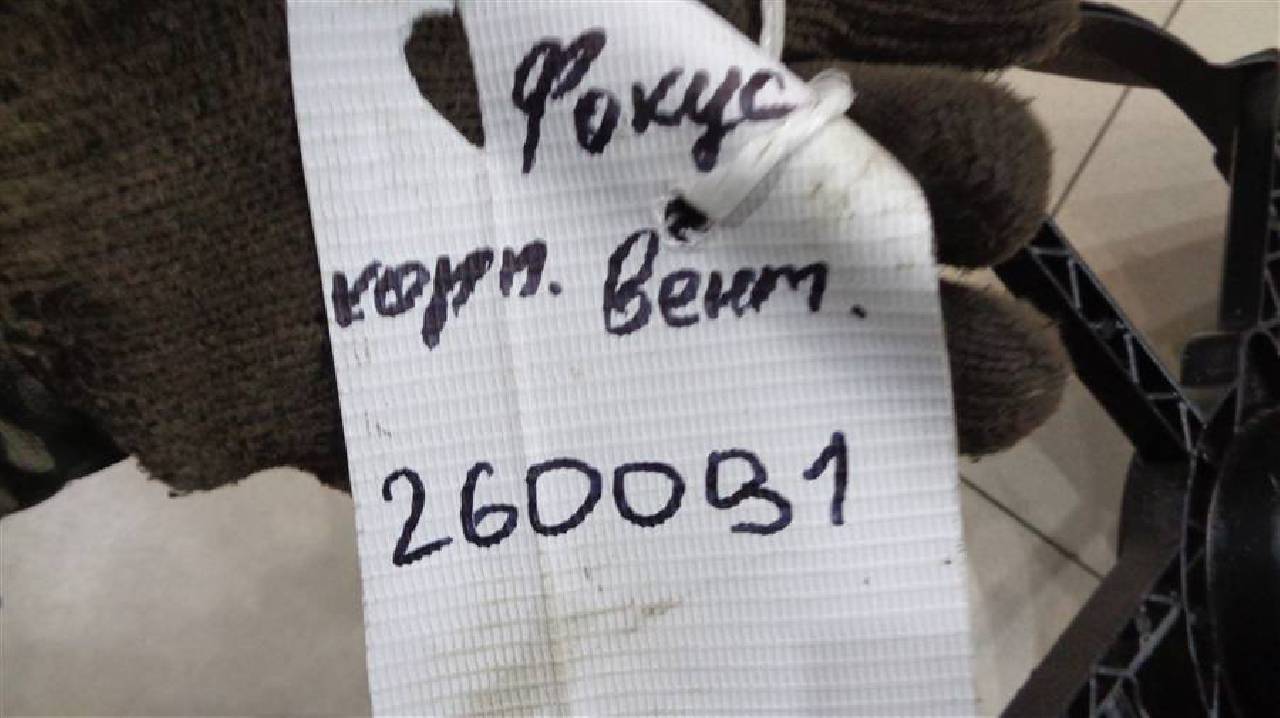 Фокус
корп. Вент.
260091